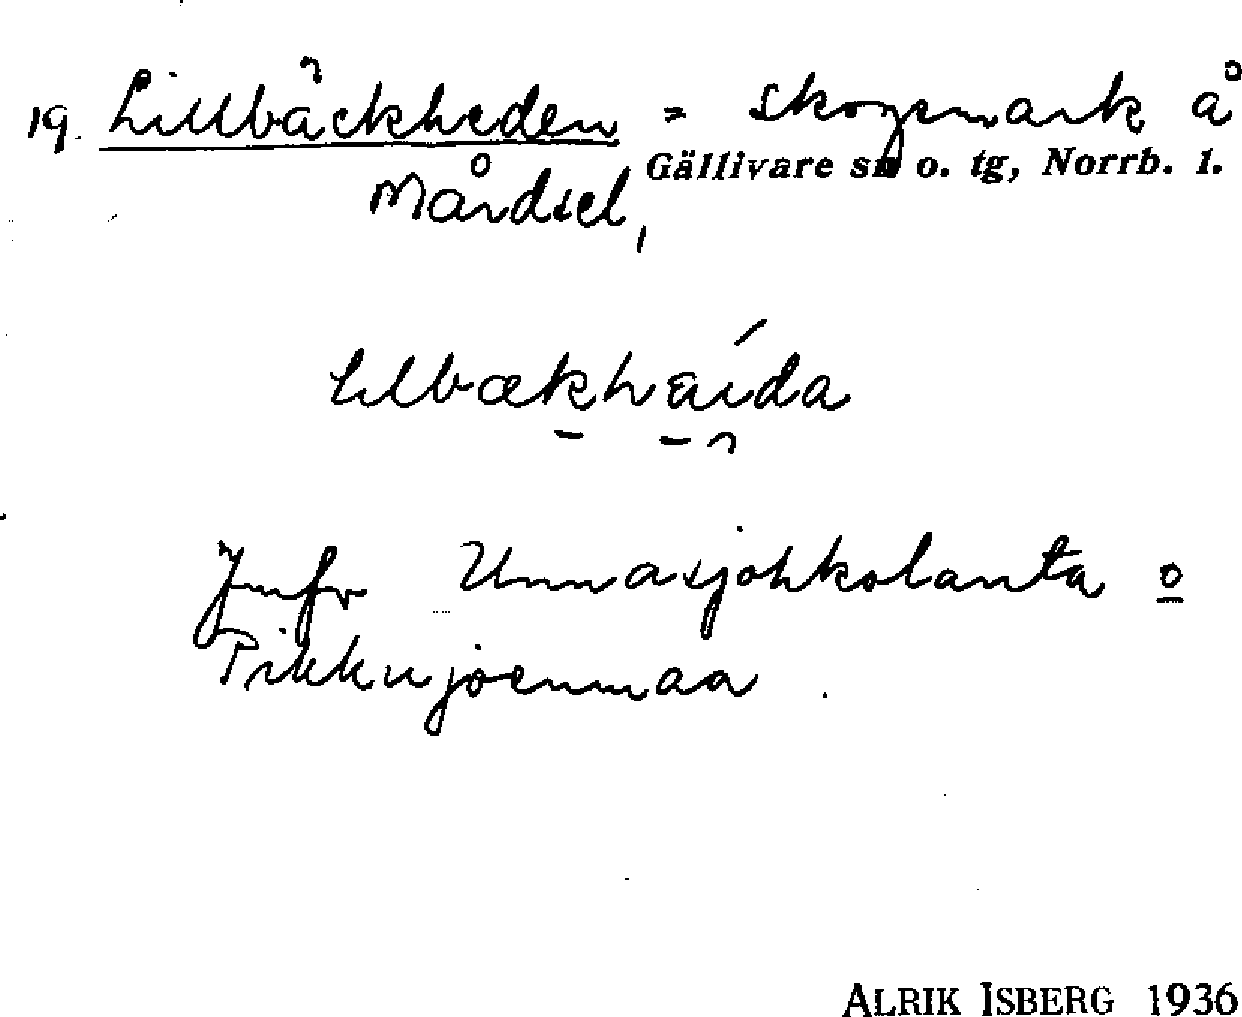 19. Lillbäckheden = skogsmark å
Gällivare sn o. tg, Norrb. l.
Mårdsel,
lilbækhæida
Jmfr Unnasjohkolanta o
Pikkujoenmaa.
ALRIK ISBERG 1936